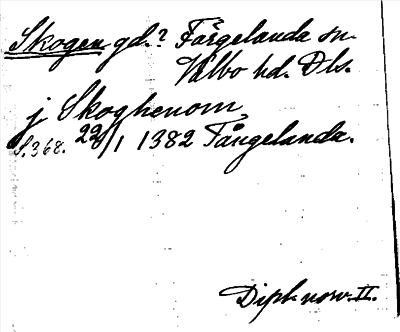 Skogen gd.? Färgelanda sn.
Valbo hd. Dls.
j Skoghenom
S.368. 22/1 1382 Fångelanda.
Dipl. norv. II.